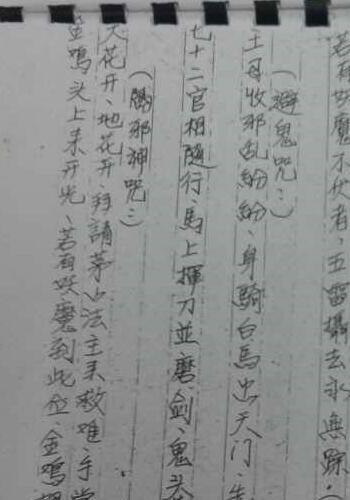 若有妖魔不伏者、五雷攝去永無踪.(
(避鬼咒:)
王母收邪乱紛紛、身騎白馬出天门、
七十二官相隨行、馬上揮刀並磨劍、鬼头
(邪神咒:)
天花开、地花开、拜請茅山法主来救难、手掌
金鳴头上来开光、若有妖魔到此位、金鳴